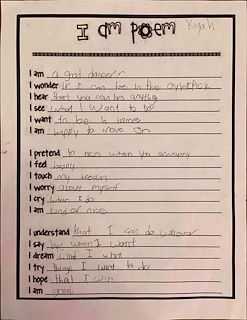 I am poem Kyah
I am a good dancer
I wonder if I can be in the
I hear that you can be anything
I see what I want to be
I want to be is home
I am happy to move on
I pretend to nice when you
I feel happy
I touch my dream
I worry about myself
I cry when I do
I am kind or nice
I understand that I can do
I say bye when I want
I dream what I want
I try things I want to do
I hope that I win
I am great